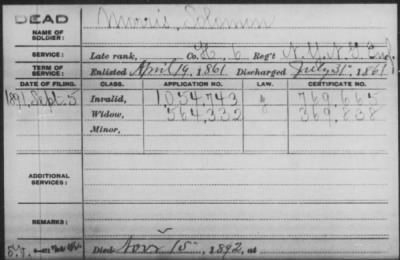 DEAD
NAME OF SOLDIER: Morris, Solomon
SERVICE: Late rank, Co. H, 6 Reg't N.Y.
TERM OF SERVICE: Enlisted April 19, 1861 Discharged July 31, 1861
DATE OF FILING. CLASS. APPLICATION NO. LAW. CERTIFICATE NO.
1891, Sept. 5 Invalid, 1,054,743 769,665
Widow, 564,332 369,838
Minor,
ADDITIONAL SERVICES:
REMARKS:
Died Nov 15, 1892, at